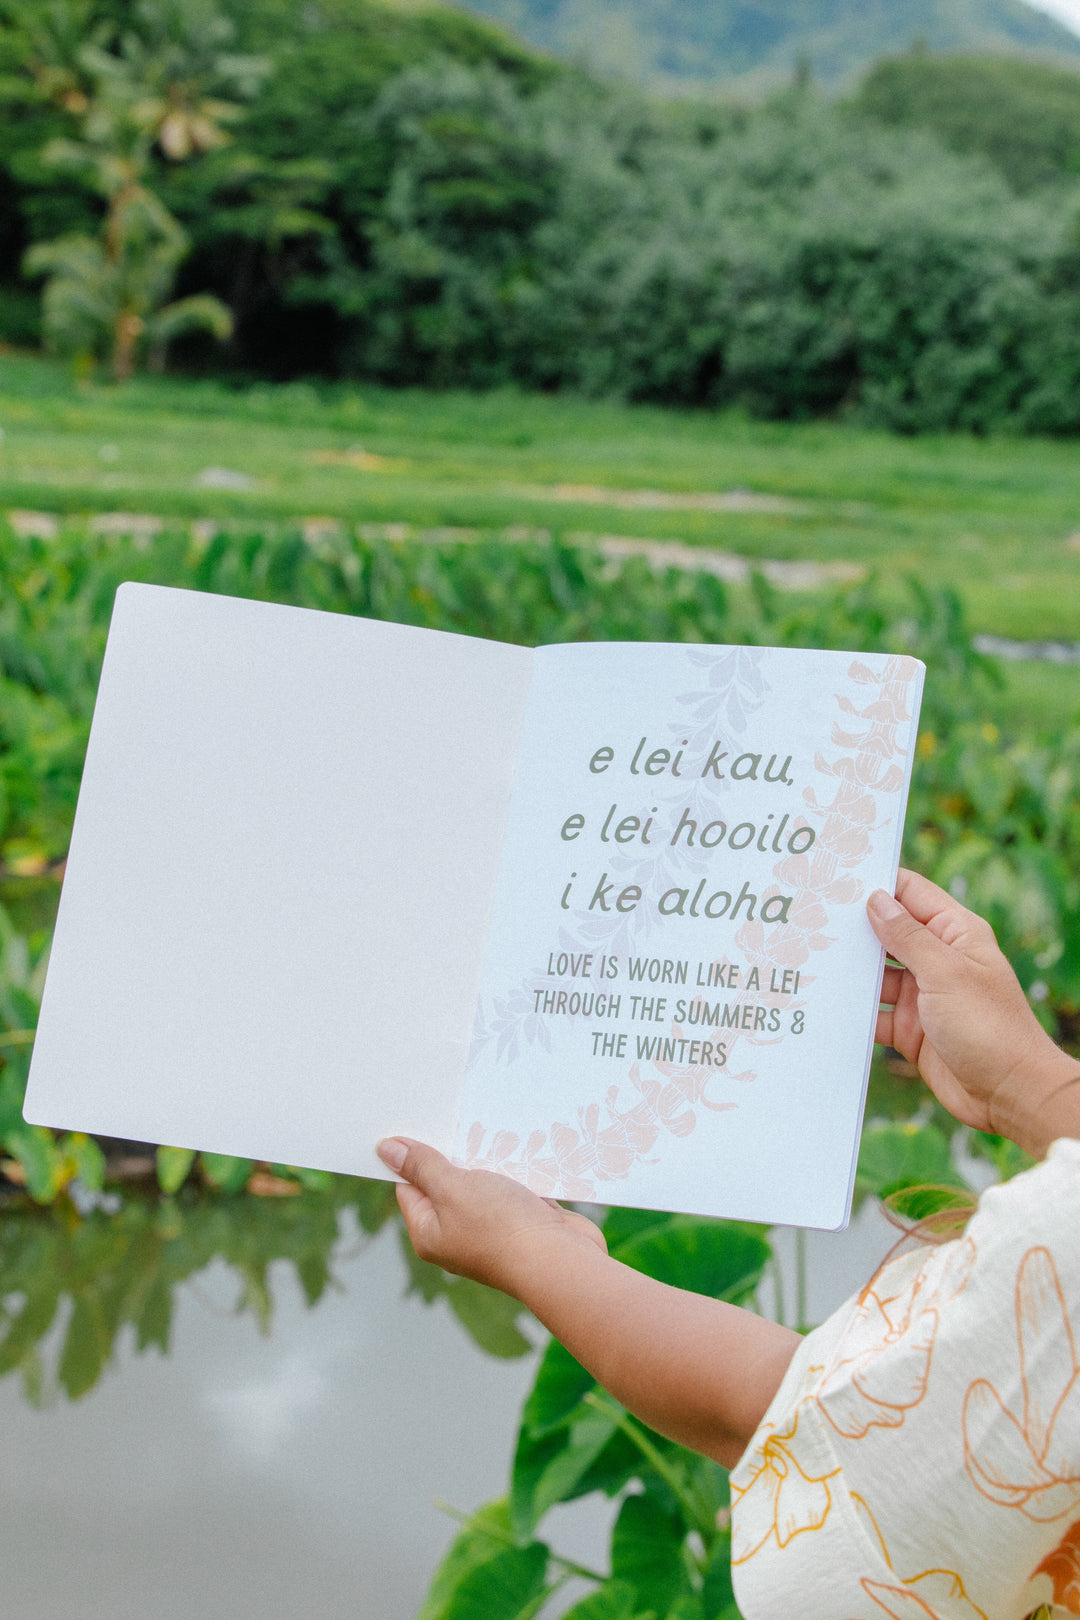 e lei kau,
e lei hooilo
i ke aloha
LOVE IS WORN LIKE A LEI
THROUGH THE SUMMERS &
THE WINTERS